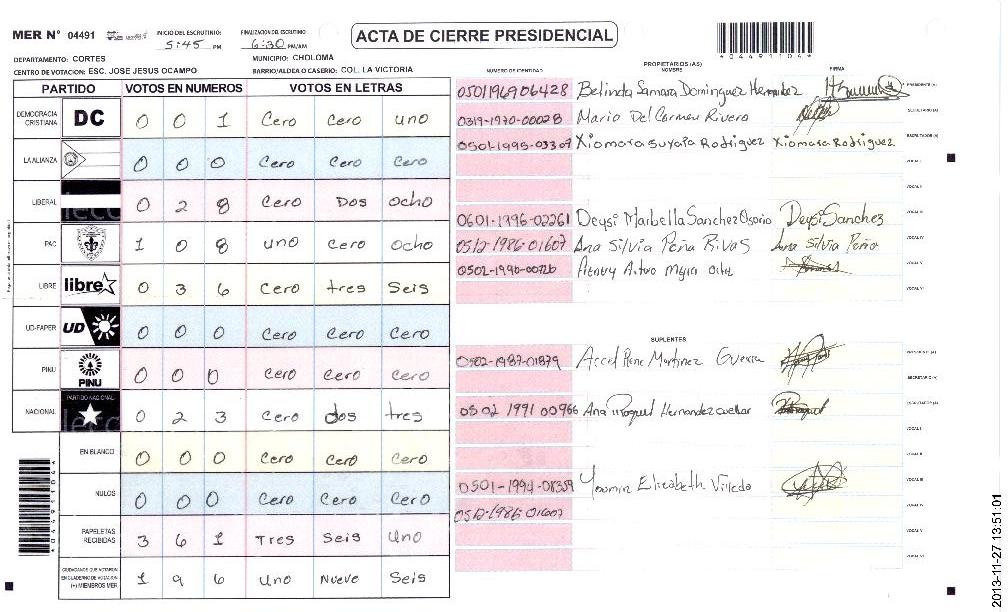 MER Nº 04491
INICIO DEL ESCRUTINIO: 5:45 PM
FINALIZACION DEL ESCRUTINIO 6:30 PM/AM
ACTA DE CIERRE PRESIDENCIAL
*04491104*
DEPARTAMENTO: CORTES
MUNICIPIO: CHOLOMA
CENTRO DE VOTACION: ESC. JOSE JESUS OCAMPO
BARRIO/ALDEA O CASERIO: COL. LA VICTORIA
PARTIDO VOTOS EN NUMEROS VOTOS EN LETRAS
DEMOCRACIA CRISTIANA DC 0 0 1 Cero Cero uno
LA ALIANZA 0 0 0 Cero Cero Cero
LIBERAL 0 2 8 Cero Dos ocho
PAC 1 0 8 uno cero ocho
LIBRE libre 0 3 6 Cero tres Seis
UD-FAPER UD 0 0 0 Cero Cero Cero
PINU PINU 0 0 0 Cero Cero Cero
NACIONAL PARTIDO NACIONAL 0 2 3 Cero dos tres
EN BLANCO 0 0 0 Cero Cero Cero
NULOS 0 0 0 Cero Cero Cero
PAPELETAS RECIBIDAS 3 6 1 Tres Seis Uno
CIUDADANOS QUE VOTARON EN CUADERNO DE VOTACION (+) MIEMBROS MER 1 9 6 Uno Nueve Seis
*04491104*
NUMERO DE IDENTIDAD
PROPIETARIOS (AS)
NOMBRE
FIRMA
0501196906428 Belinda Samara Dominguez Hernandez PRESIDENTE (A)
0319-1970-00028 Mario Del Carmen Rivera SECRETARIO (A)
0501-1995-03307 Xiomara Suyapa Rodriguez Xiomara Rodriguez ESCRUTADOR (A)
VOCAL I
VOCAL II
0601-1996-02261 Deysi Marbella Sanchez Osorio Deysi Sanchez VOCAL III
0512-1986-01607 Ana Silvia Peña Rivas Ana Silvia Peña VOCAL IV
0502-1990-00726 VOCAL V
VOCAL VI
SUPLENTES
0502-1987-01879 Martinez Guerra PRESIDENTE (A)
SECRETARIO (A)
0502 1991 00966 Ana Raquel Hernandez cuellar ESCRUTADOR (A)
VOCAL I
VOCAL II
0501-1994-01359 Yasmin Elizabeth Villeda VOCAL III
0512-1986-01607 VOCAL IV
VOCAL V
VOCAL VI
2013-11-27 13:51:01